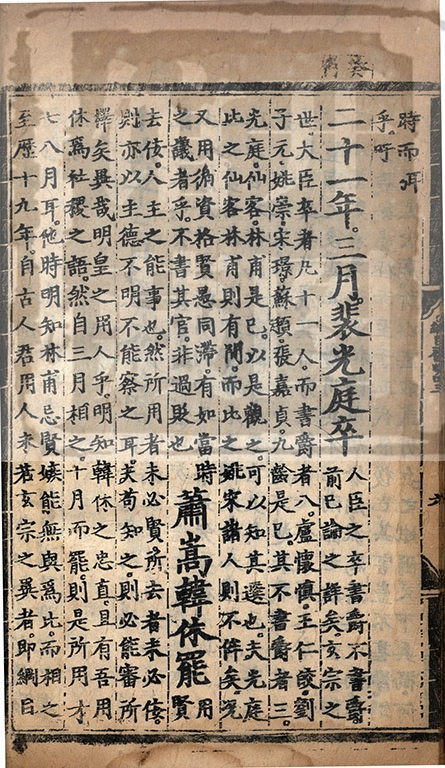 時而弭
乎。吁
二十一年。三月。裴光庭卒
人臣之卒書爵不書爵
前已論之詳矣。玄宗之
世。大臣卒者凡十一人。而書爵者八。盧懷慎。王仁皎。劉
子元。姚崇。宋璟。蘇頲。張嘉貞。九齡是已。其不書爵者三。
光庭。仙客。林甫是已。以是觀之。可以知其選也。夫光庭
比之仙客林甫則有間。而比之姚宋諸人則不侔矣。況
又用循資格賢愚同滯。有如當時
之議者乎。不書其官。非過貶也
蕭嵩韓休罷
用
賢
去佞。人主之能事也。然所用者未必賢。所去者未必佞
則亦以主德不明不能察之耳。夫苟知之。則必能審所
擇矣。異哉明皇之用人乎。明知韓休之忠直。且有吾用
休爲社稷之語。然自三月相之。十月而罷。則是所用才
七八月耳。他時明知林甫忌賢嫉能無與爲比。而相之
至歷十九年。自古人君用人。未若玄宗之異者。即綱目